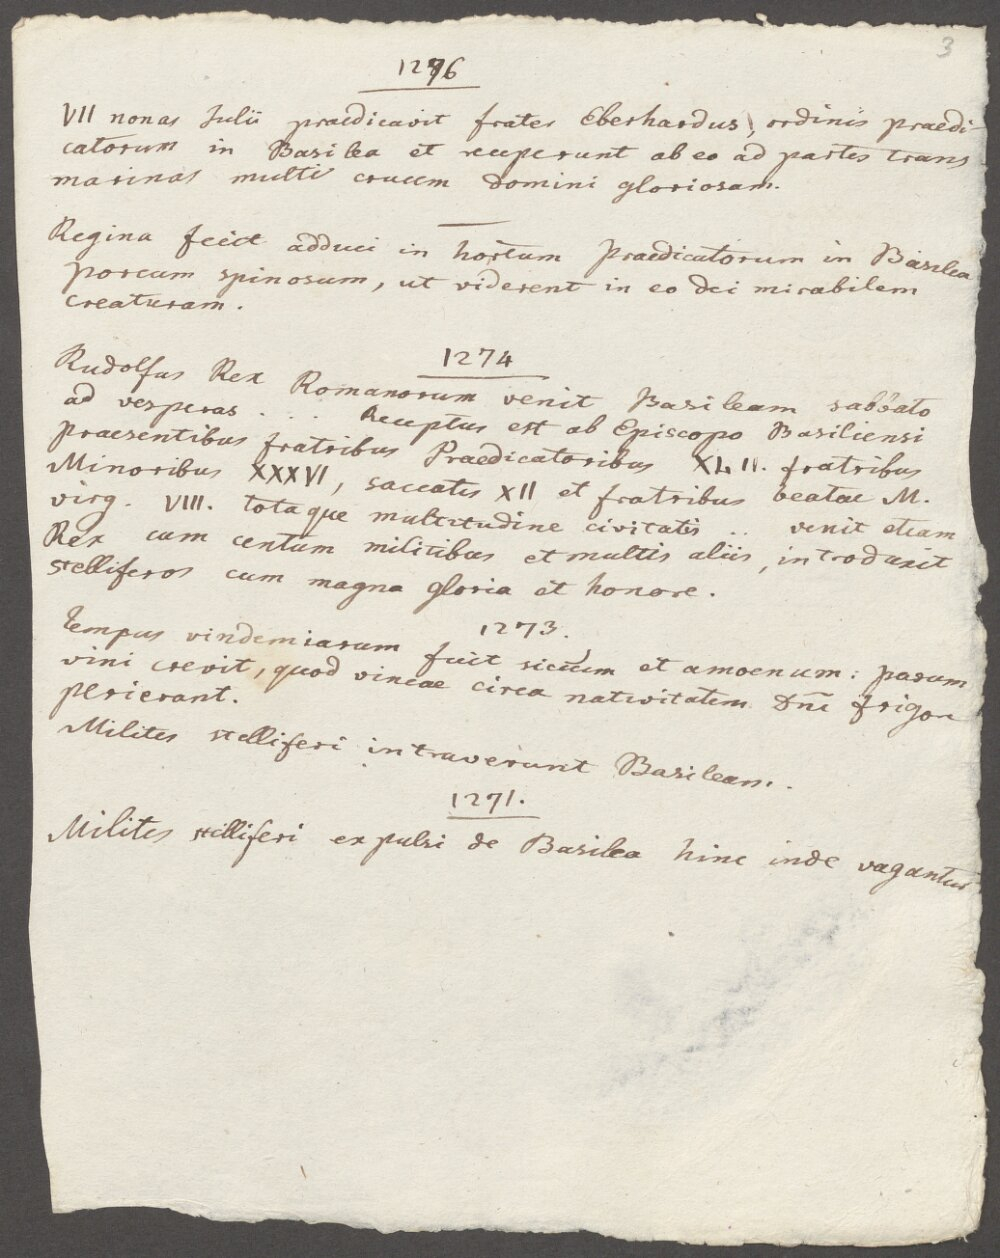 3
1276
VII nonas Julii praedicavit frater Eberhardus, ordinis praedi-
catorum in Basilea et receperunt ab eo ad partes trans
marinas multi crucem domini gloriosam.
Regina fecit adduci in hortum Praedicatorum in Basilea
porcum spinosum, ut viderent in eo dei mirabilem
creaturam.
1274
Rudolfus Rex Romanorum venit Basileam sabbato
ad vesperas . . . Receptus est ab Episcopo Basiliensi
praesentibus fratribus Praedicatoribus XLII. fratribus
Minoribus XXXVI, saccatis XII et fratribus beatae M.
virg. VIII. totaque multitudine civitatis .. venit etiam
Rex cum centum militibus et multis aliis, introduxit
stelliferos cum magna gloria et honore.
1273.
Tempus vindemiarum fuit siccum et amoenum: parum
vini crevit, quod vineae circa nativitatem Dnī frigore
perierant.
Milites stelliferi intraverunt Basileam.
1271.
Milites stelliferi expulsi de Basilea hinc inde vagantur